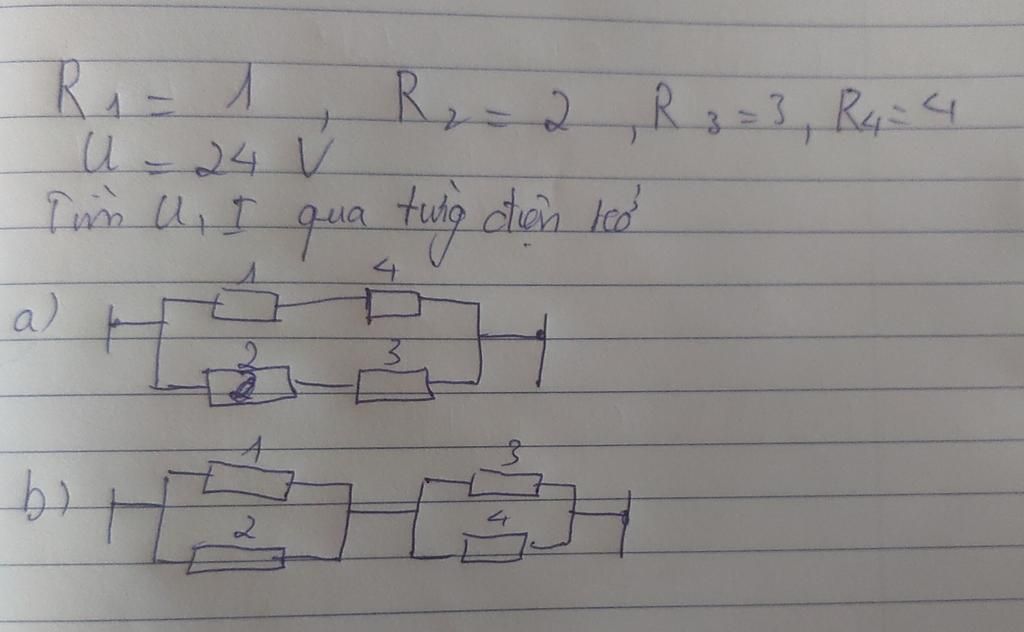 R1 = 1, R2 = 2, R3 = 3, R4 = 4
U = 24 V
Tìm U, I qua từng điện trở
1 4
a)
2 3
2
1 3
b)
2 4